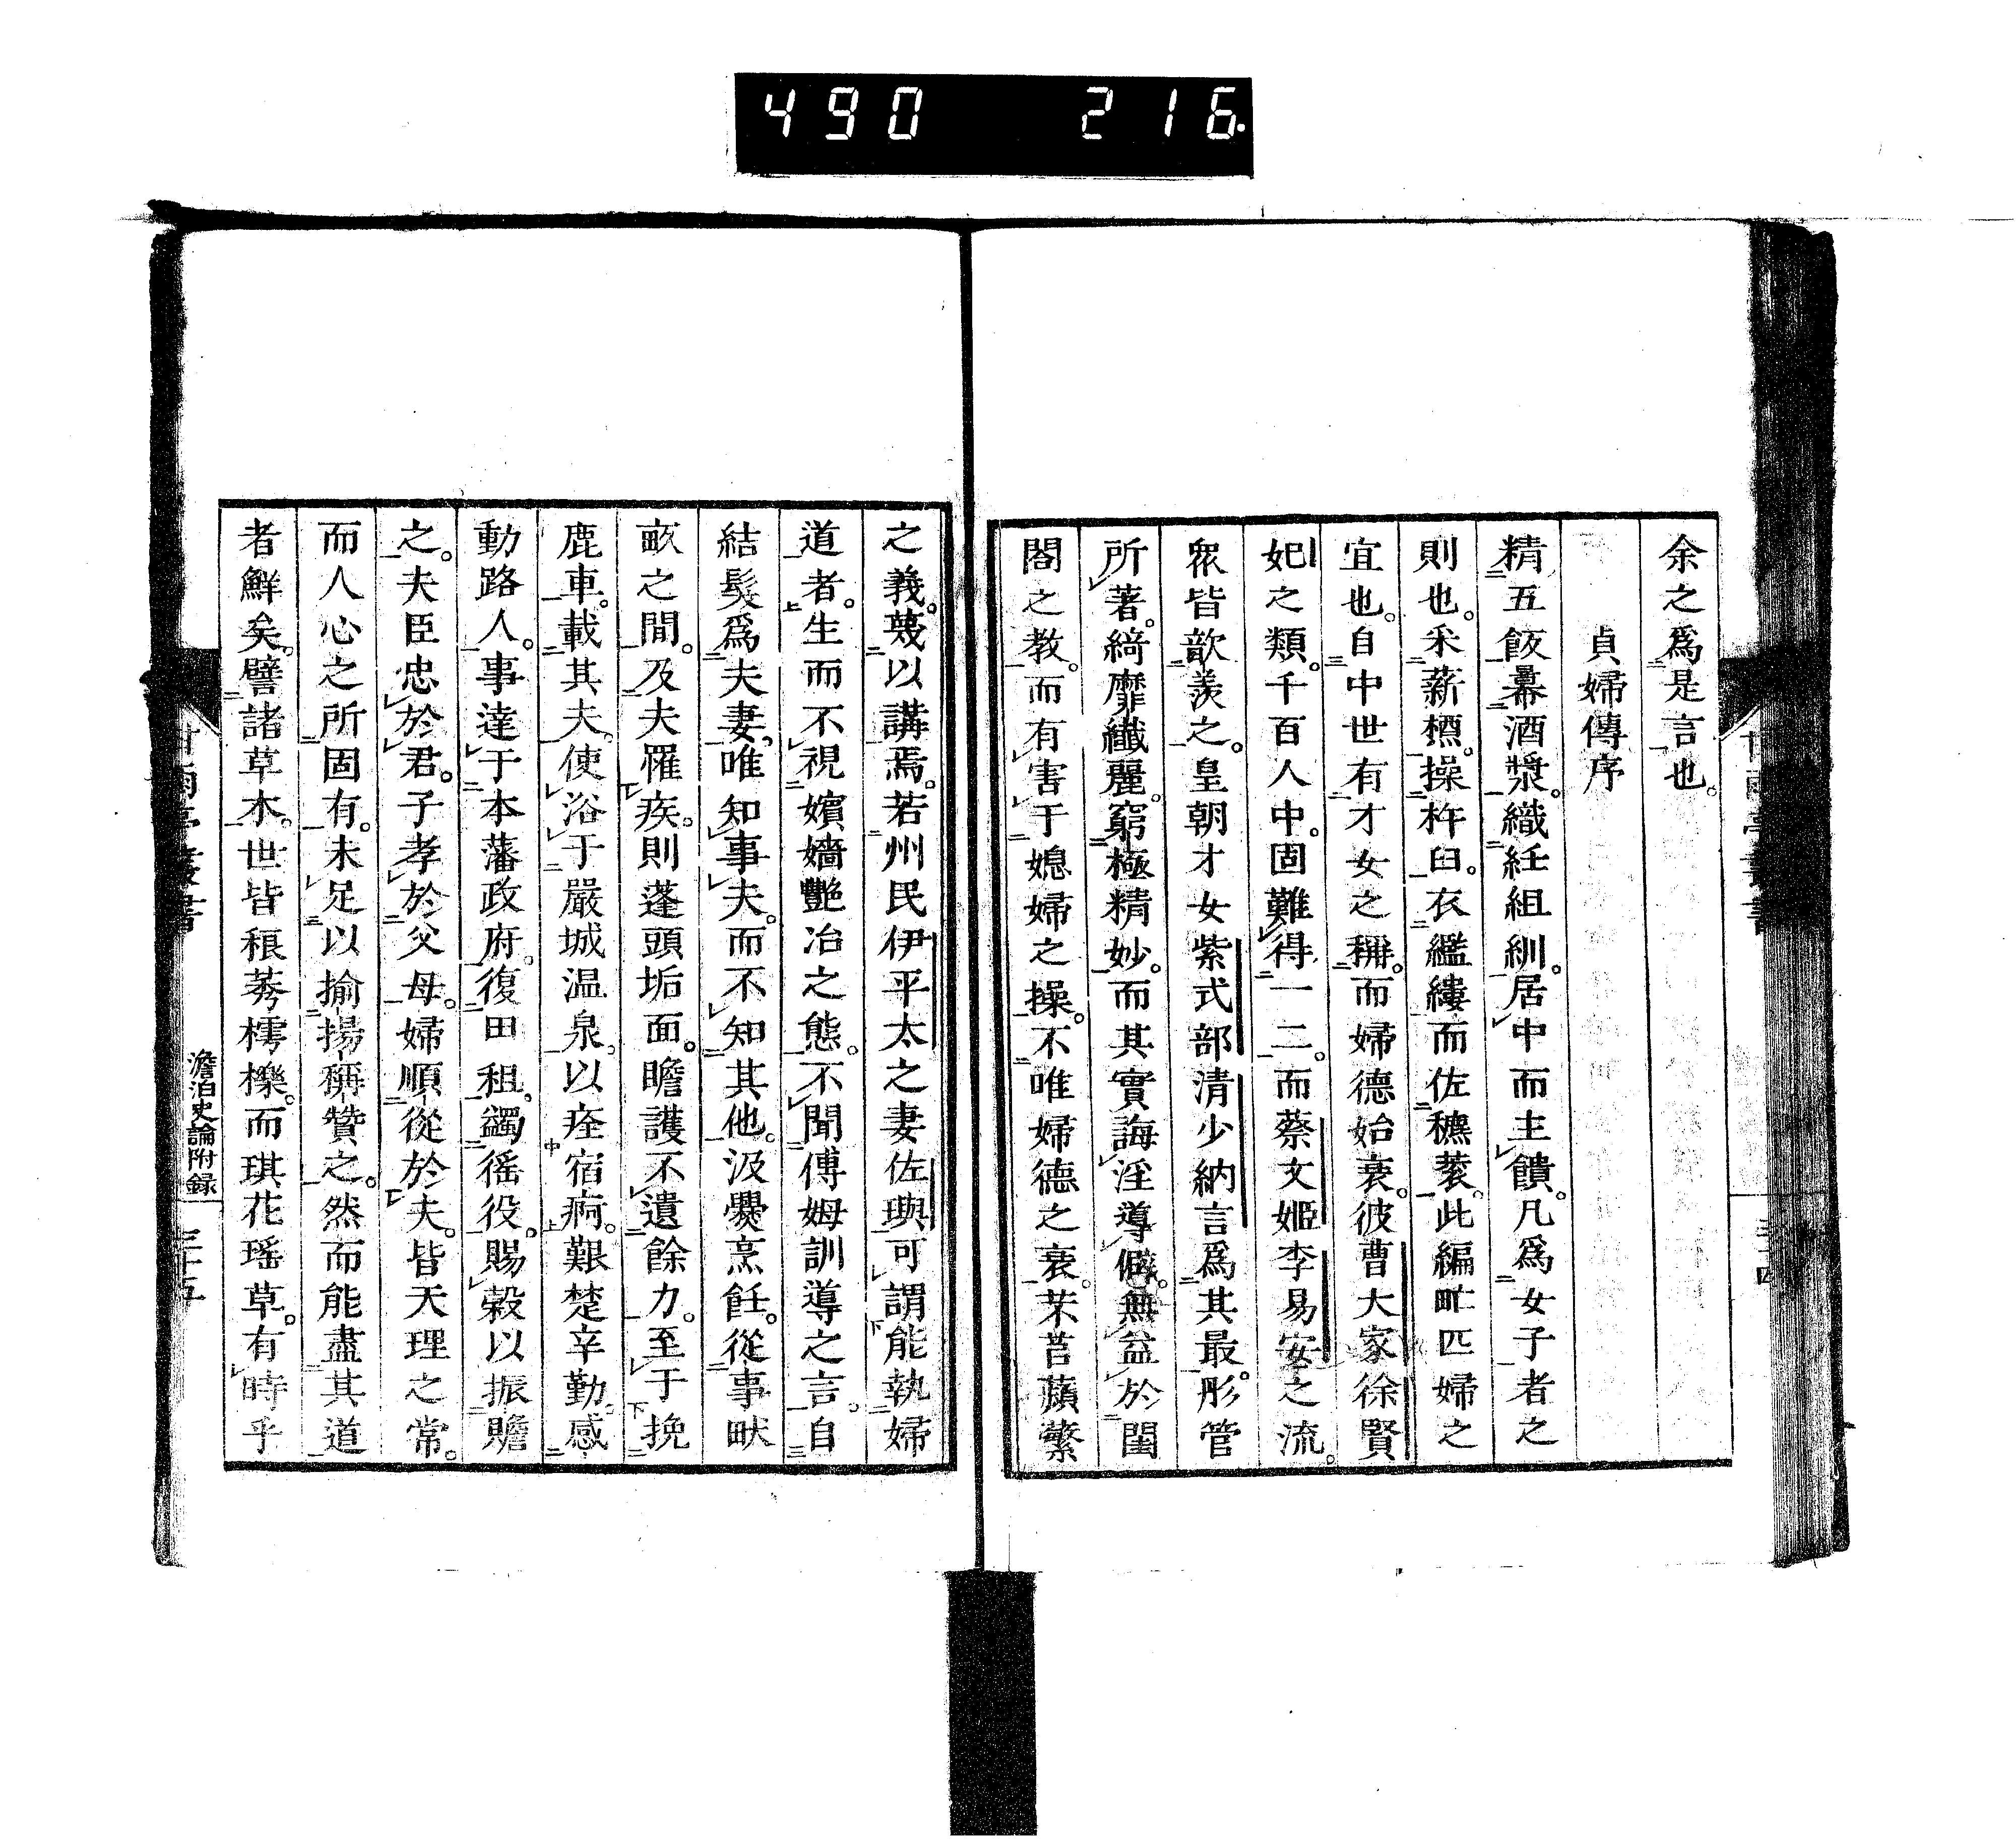 490 216
余之爲是言也。
貞婦傳序
精五飯冪酒漿。織紝組紃。居中而主饋。凡爲女子者之
則也。釆薪樵。操杵臼。衣繿縷而佐穮蔉。此編甿匹婦之
宜也。自中世有才女之稱。而婦德始衰。彼曹大家徐賢
妃之類。千百人中。固難得一二。而蔡文姬李易安之流。
衆皆歆羨之。皇朝才女紫式部清少納言爲其最。彤管
所著。綺靡纖麗。窮極精妙。而其實誨淫導僻。無益於閨
閤之教。而有害于媳婦之操。不唯婦德之衰。芣苢蘋蘩
之義。蔑以講焉。若州民伊平太之妻佐與可謂能執婦
道者。生而不視嬪嬙艷冶之態。不聞傅姆訓導之言。自
結髮爲夫妻。唯知事夫。而不知其他。汲爨烹飪。從事畎
畝之間。及夫罹疾。則蓬頭垢面。瞻護不遺餘力。至于挽
鹿車。載其夫。使浴于嚴城温泉。以痊宿痾。艱楚辛勤。感
動路人。事達于本藩政府。復田租。蠲徭役。賜穀以振贍
之。夫臣忠於君。子孝於父母。婦順從於夫。皆天理之常。
而人心之所固有。未足以揄揚稱贊之。然而能盡其道
者鮮矣。譬諸草木。世皆稂莠樗櫟。而琪花瑶草。有時乎
澹泊史論附録
三十五